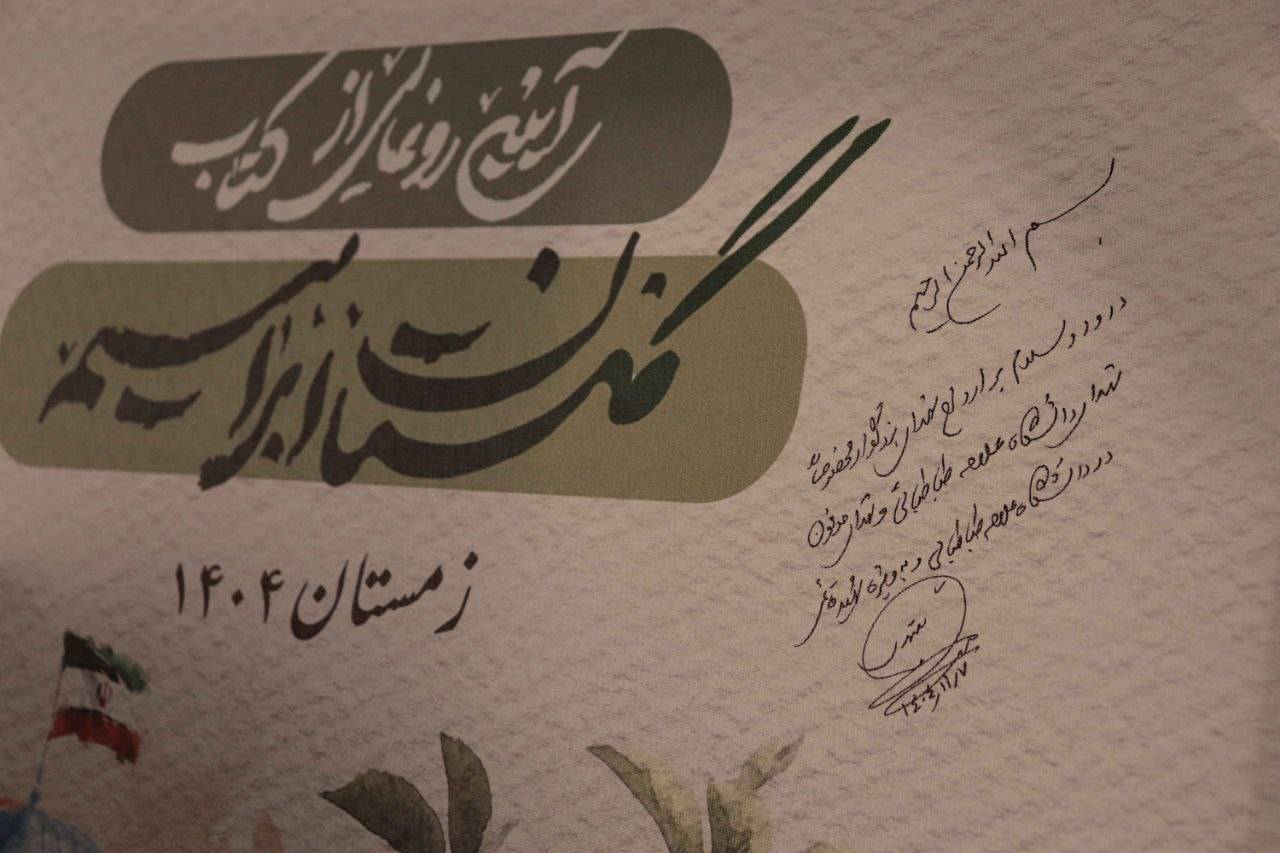 آیین رونمایی از کتاب
گلستان ابراهیمی
زمستان ۱۴۰۴
بسم الله الرحمن الرحیم
درود و سلام بر ارواح شهدای بزرگوار مخصوصاً
شهدای دانشگاه علامه طباطبائی و شهدای مدفون
در دانشگاه علامه طباطبائی و به ویژه
۱۴۰۴/۱۱/۷